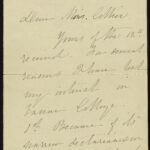 Dear Mrs. Collier
Yours of the 12th
received. For several
reasons I have lost
my interest in
Eureka College.
1st Because of its
narrow